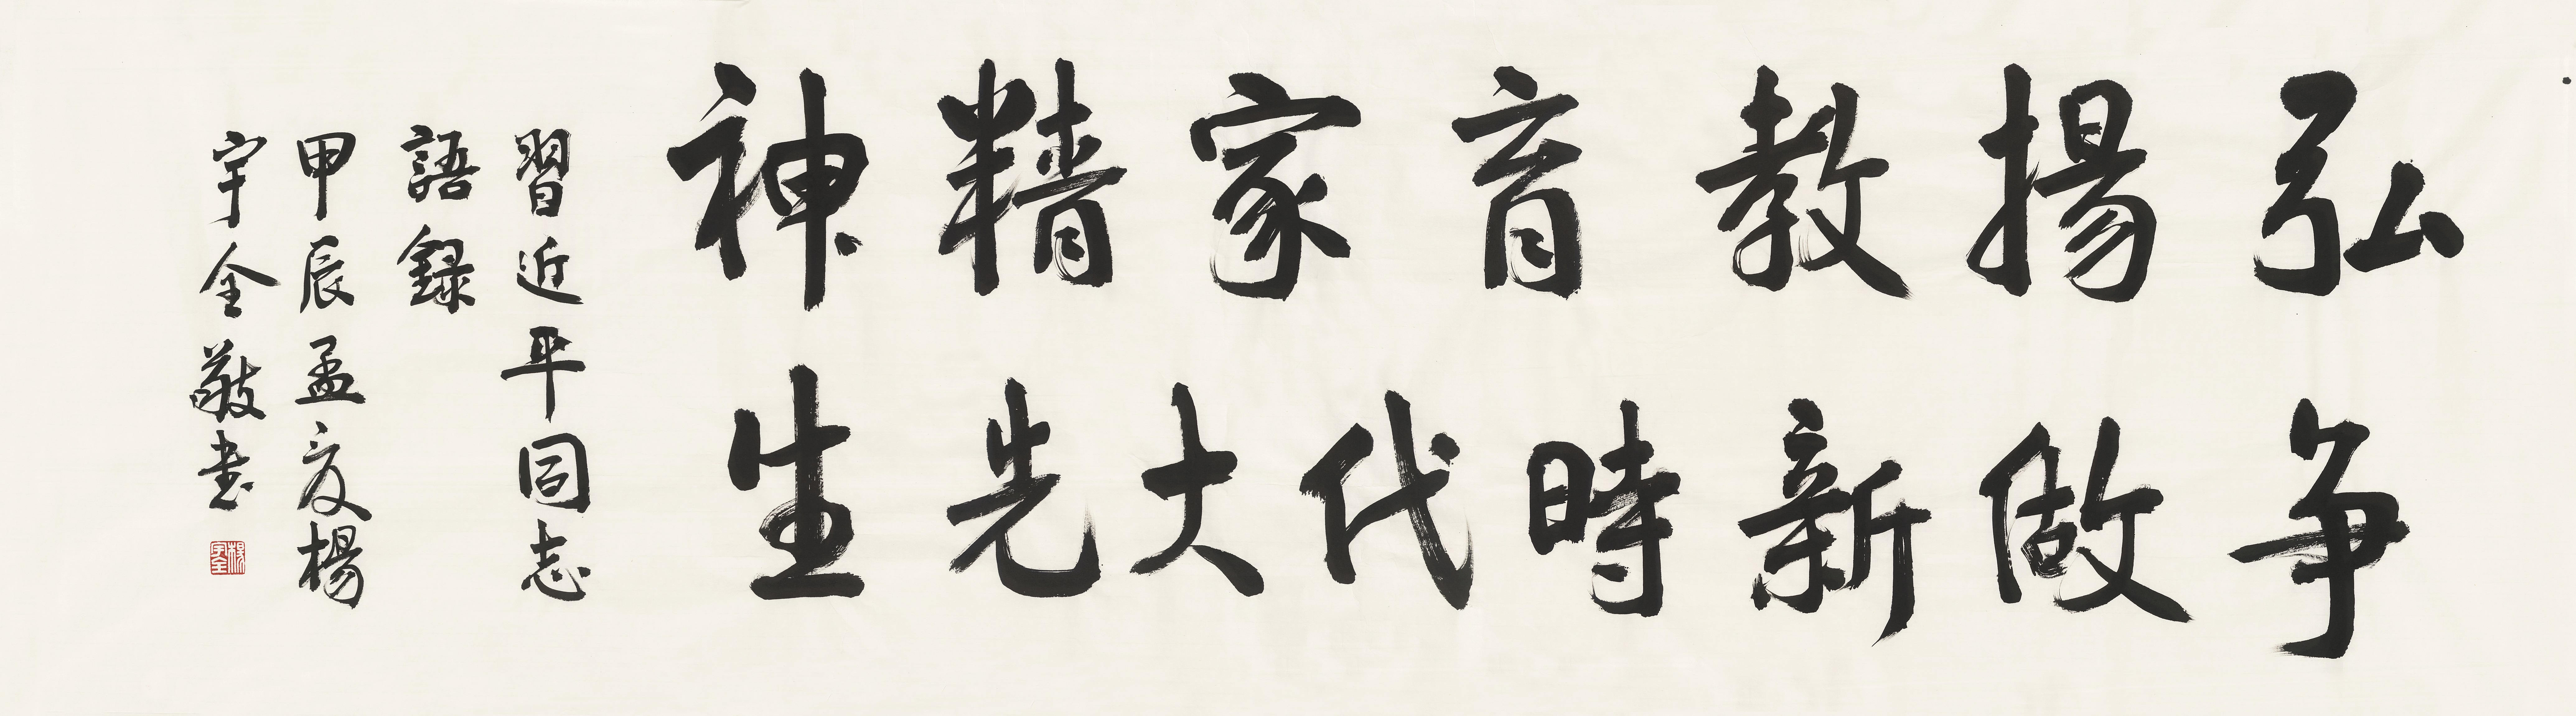 弘揚教育家精神
争做新時代大先生
習近平同志
語録
甲辰孟夏楊
宇全敬書
楊宇全